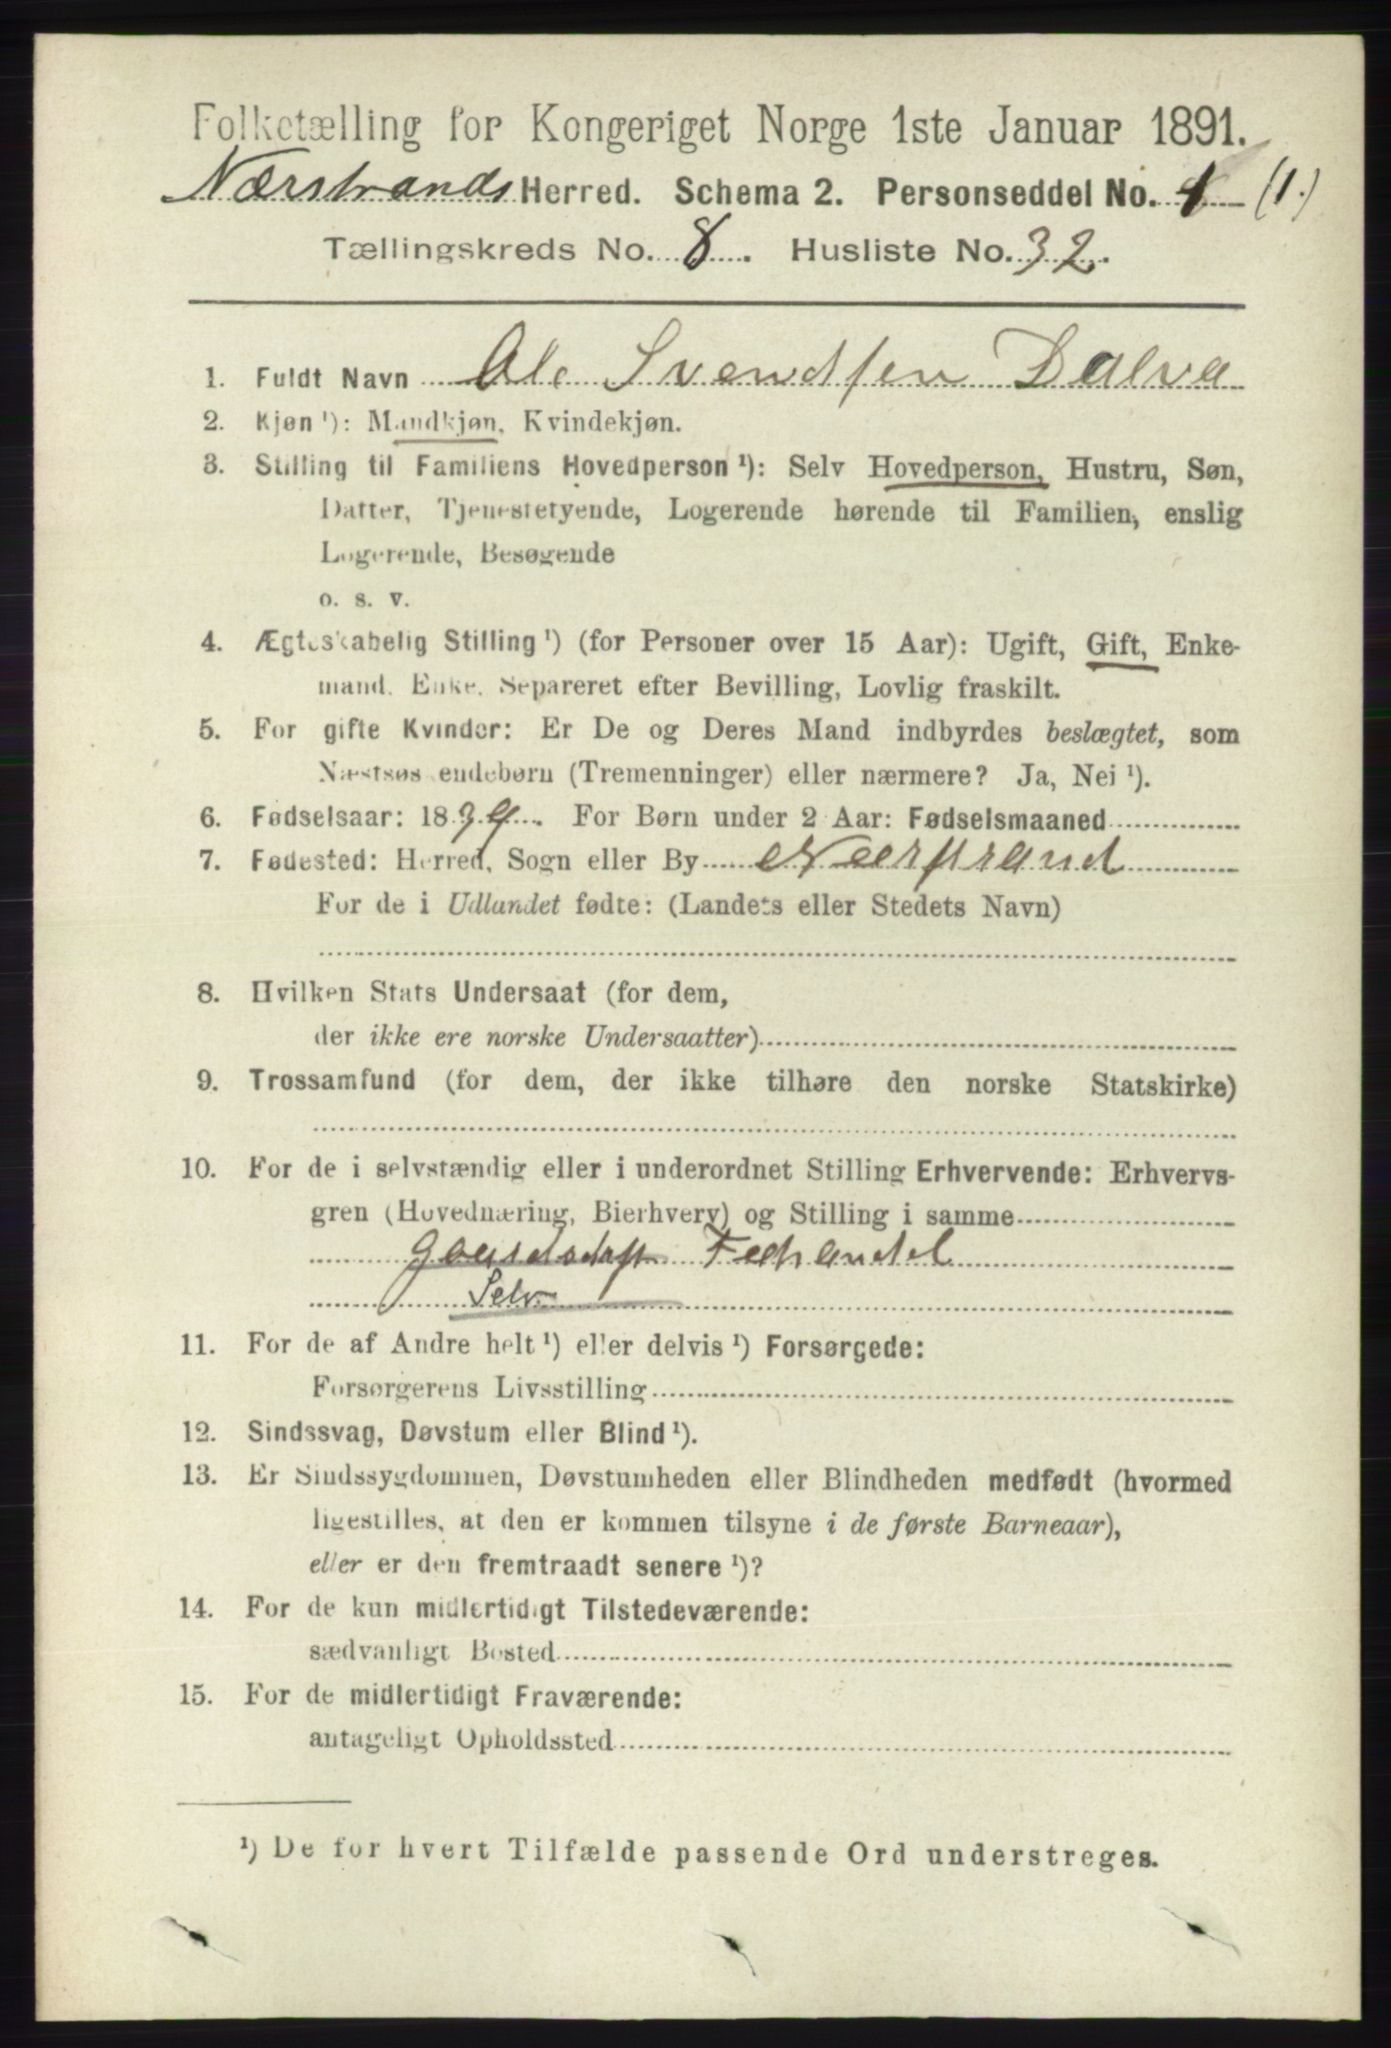 Folketælling for Kongeriget Norge 1ste Januar 1891.
Nærstrands Herred. Schema 2. Personseddel No. 1 (1.)
Tællingskreds No. 8. Husliste No. 32.
1. Fuldt Navn Ole Svendsen Dalva
2. Kjøn ¹): Mandkjøn, Kvindekjøn.
3. Stilling til Familiens Hovedperson ¹): Selv Hovedperson, Hustru, Søn,
Datter, Tjenestetyende, Logerende hørende til Familien, enslig
Logerende, Besøgende
o. s. v.
4. Ægteskabelig Stilling ¹) (for Personer over 15 Aar): Ugift, Gift, Enke-
mand, Enke, Separeret efter Bevilling, Lovlig fraskilt.
5. For gifte Kvinder: Er De og Deres Mand indbyrdes beslægtet, som
Næstsøskendebørn (Tremenninger) eller nærmere? Ja, Nei ¹).
6. Fødselsaar: 1839. For Børn under 2 Aar: Fødselsmaaned
7. Fødested: Herred, Sogn eller By Nærstrand
For de i Udlandet fødte: (Landets eller Stedets Navn)
8. Hvilken Stats Undersaat (for dem,
der ikke ere norske Undersaatter)
9. Trossamfund (for dem, der ikke tilhøre den norske Statskirke)
10. For de i selvstændig eller i underordnet Stilling Erhvervende: Erhvervs-
gren (Hovednæring, Bierhverv) og Stilling i samme
Fæhandel
Selv
11. For de af Andre helt ¹) eller delvis ¹) Forsørgede:
Forsørgerens Livsstilling
12. Sindssvag, Døvstum eller Blind ¹).
13. Er Sindssygdommen, Døvstumheden eller Blindheden medfødt (hvormed
ligestilles, at den er kommen tilsyne i de første Barneaar),
eller er den fremtraadt senere ¹)?
14. For de kun midlertidigt Tilstedeværende:
sædvanligt Bosted
15. For de midlertidigt Fraværende:
antageligt Opholdssted
¹) De for hvert Tilfælde passende Ord understreges.